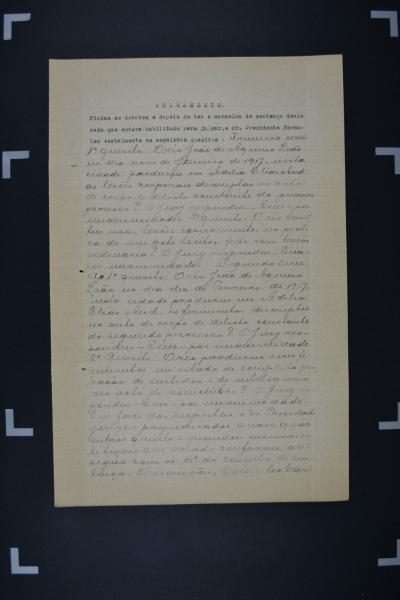 JULGAMENTO.
Findos os debates e depois de ter o conselho de sentença decla
rado que estava habilitado para julgar, o Dr. Presidente formu
lou verbalmente os seguintes quesitos : Primeira serie
1º quesito: O réo João de Aquino Leão
no dia nove de Janeiro de 1917, nesta
cidade, produziu em Adelia Elias Aud
as lesões corporaes descriptas no auto
de corpo de delicto constante do primeiro
processo? O Jury respondeu - Sim - por
unanimidade. 2º Quesito: O réo
essas lesões casualmente, na prati
ca de um acto licito, feito com tenção
ordinaria? O Jury respondeu - Sim
por unanimidade. Segunda serie
1º quesito: O réo João de Aquino
Leão, no dia dez de Fevereiro de 1917,
nesta cidade produziu em Adelia
Elias Aud, os ferimentos descriptos
no auto de corpo de delicto constante
do segundo processo? O Jury res-
pondeu - Sim - por unanimidade
2º Quesito: O réo produziu esses fe
rimentos em estado de completa pri
vação de sentidos e de intelligencia
no acto de commetter? O Jury res
pondeu - Sim - por unanimidade
Em face das respostas, o Dr. Presidente
julgou prejudicados quaesquer
outros quesitos e mandou